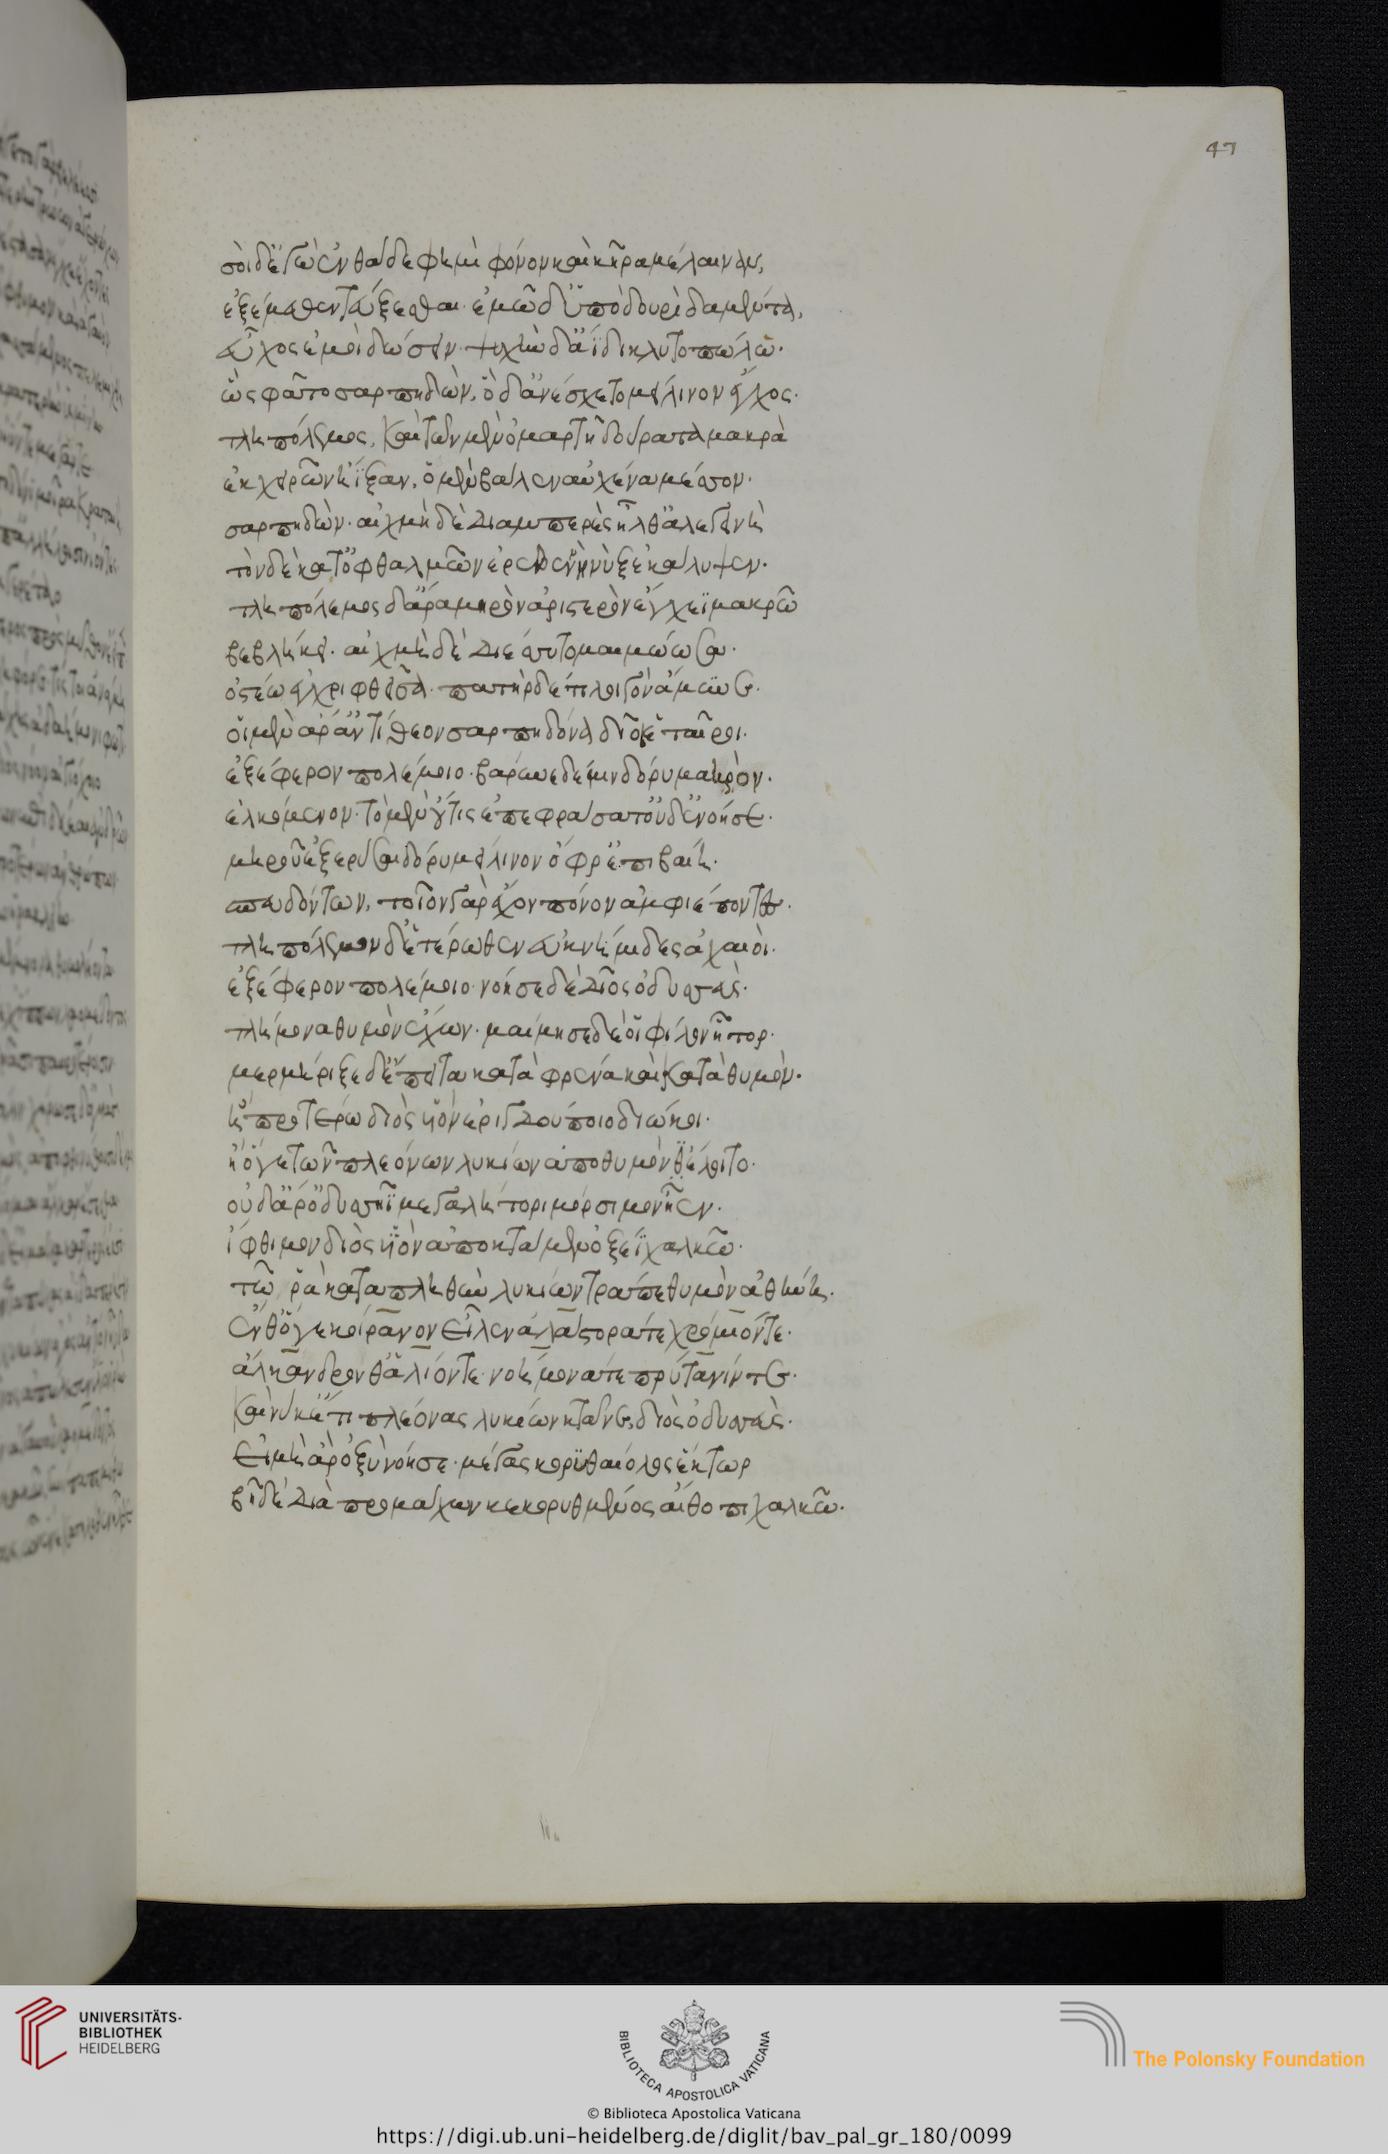 47
σοὶ δ' ἐγὼ ἐνθάδε φημὶ φόνον καὶ κῆρα μέλαιναν,
ἐξ ἐμέθεν τεύξεσθαι· ἐμῶ δ' ὑπὸ δουρὶ δαμέντα,
εὖχος ἐμοὶ δώσειν· ψυχὴν δ' ἄϊδι κλυτοπώλω·
ὣς φάτο σαρπηδὼν, ὁ δ' ἀνέσχετο μείλινον ἔγχος·
τληπόλεμος, καὶ τῶν μὲν ὁμαρτῆ δούρατα μακρὰ
ἐκ χειρῶν ἤϊξαν, ὁ μὲν βάλεν αὐχένα μέσσον·
σαρπηδὼν· αἰχμὴ δὲ διαμπερὲς ἦλθ' ἀλεγεινὴ
τὸν δὲ κατ' ὀφθαλμῶν ἐρεβεννὴ νὺξ ἐκάλυψεν·
τληπόλεμος δ' ἄρα μηρὸν ἀριστερὸν ἔγχεϊ μακρῶ
βεβλήκει· αἰχμὴ δὲ διέσσυτο μαιμώωσα·
ὀστέω ἐγχριφθεῖσα· πατὴρ δ' ἔτι λοιγὸν ἄμυνε·
οἱ μὲν ἄρ' ἀντίθεον σαρπηδόνα δῖοι ἑταῖροι·
ἐξέφερον πολέμοιο· βάρυνε δέ μιν δόρυ μακρὸν·
ἑλκόμενον· τὸ μὲν οὔτις ἐπεφράσατ' οὐδ' ἐνόησε·
μηροῦ ἐξερύσαι δόρυ μείλινον ὄφρ' ἐπιβαίη·
σπευδόντων, τοῖον γὰρ ἔχον πόνον ἀμφιέποντες·
τληπόλεμον δ' ἑτέρωθεν ἐυκνήμιδες ἀχαιοὶ·
ἐξέφερον πολέμοιο· νόησε δὲ δῖος ὀδυσσεὺς·
τλήμονα θυμὸν ἔχων· μαίμησε δέ οἱ φίλον ἦτορ·
μερμήριξε δ' ἔπειτα κατὰ φρένα καὶ κατὰ θυμὸν·
ἢ προτέρω διὸς υἱὸν ἐριγδούποιο διώκοι·
ἢ ὅγε τῶν πλεόνων λυκίων ἀπὸ θυμὸν ἕλοιτο·
οὐδ' ἄρ' ὀδυσσῆϊ μεγαλήτορι μόρσιμον ἦεν·
ἴφθιμον διὸς υἱὸν ἀποκτάμεν ὀξέϊ χαλκῶ·
τῶ ῥα κατὰ πληθὺν λυκίων τράπε θυμὸν ἀθήνη·
ἔνθ' ὅγε κοίρανον εἷλεν ἀλάστορά τε χρόμιόν τε·
ἄλκανδρον θ' ἅλιόν τε· νοήμονά τε πρύτανίν τε·
καὶ νύ κ' ἔτι πλέονας λυκίων κτάνε, δῖος ὀδυσσεὺς·
εἰ μὴ ἄρ' ὀξὺ νόησε· μέγας κορυθαίολος ἕκτωρ
βῆ δὲ διὰ προμάχων κεκορυθμένος αἴθοπι χαλκῶ·
UNIVERSITÄTS-
BIBLIOTHEK
HEIDELBERG
BIBLIOTECA APOSTOLICA VATICANA
The Polonsky Foundation
© Biblioteca Apostolica Vaticana
https://digi.ub.uni-heidelberg.de/diglit/bav_pal_gr_180/0099